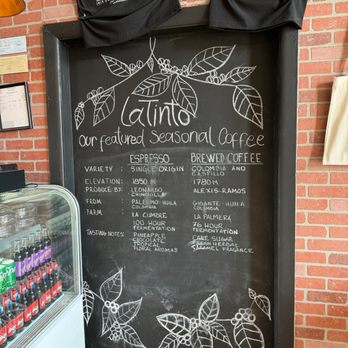 LaTinto
Our featured Seasonal Coffee
ESPRESSO BREWED COFFEE
VARIETY : SINGLE ORIGIN COLOMBIA AND CASTILLO
ELEVATION: 1850 M 1780 M
PRODUCE BY: LEONARDO ALEXIS RAMOS
FROM PALESTINO-HUILA COLOMBIA GIGANTE-HUILA COLOMBIA
FARM LA CUMBRE LA PALMERA
100 HOUR FERMENTATION 76 HOUR FERMENTATION
TASTING NOTES: PINEAPPLE CANE SUGAR
CHOCOLATE HERBAL
TROPICAL CARAMEL FRAGANCE
FLORAL AROMAS